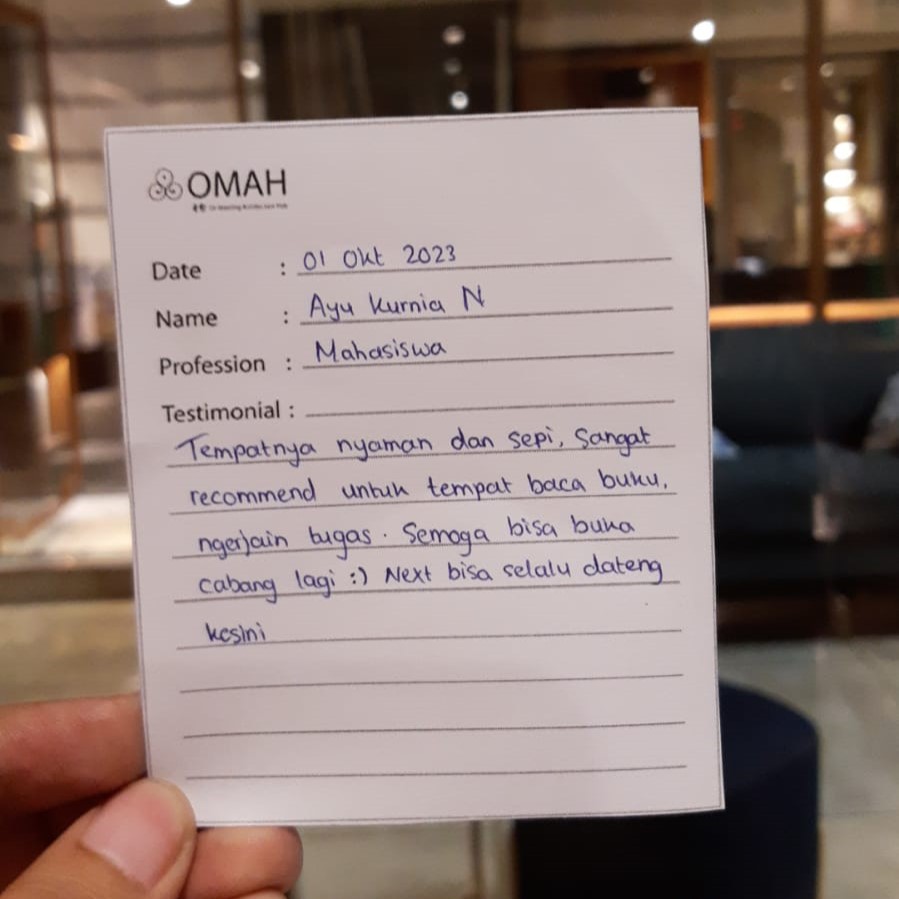 OMAH
Date : 01 Okt 2023
Name : Ayu Kurnia N
Profession : Mahasiswa
Testimonial :
Tempatnya nyaman dan sepi, Sangat
recommend untuk tempat baca buku,
ngerjain tugas. Semoga bisa buka
cabang lagi :) Next bisa selalu dateng
kesini